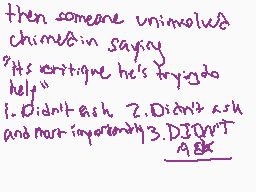 then someone uninvolved
chimed in saying
"Its critique he's trying to
help"
1. Didn't ask 2. Didn't ask
and most importantly 3. DIDN'T
ASK